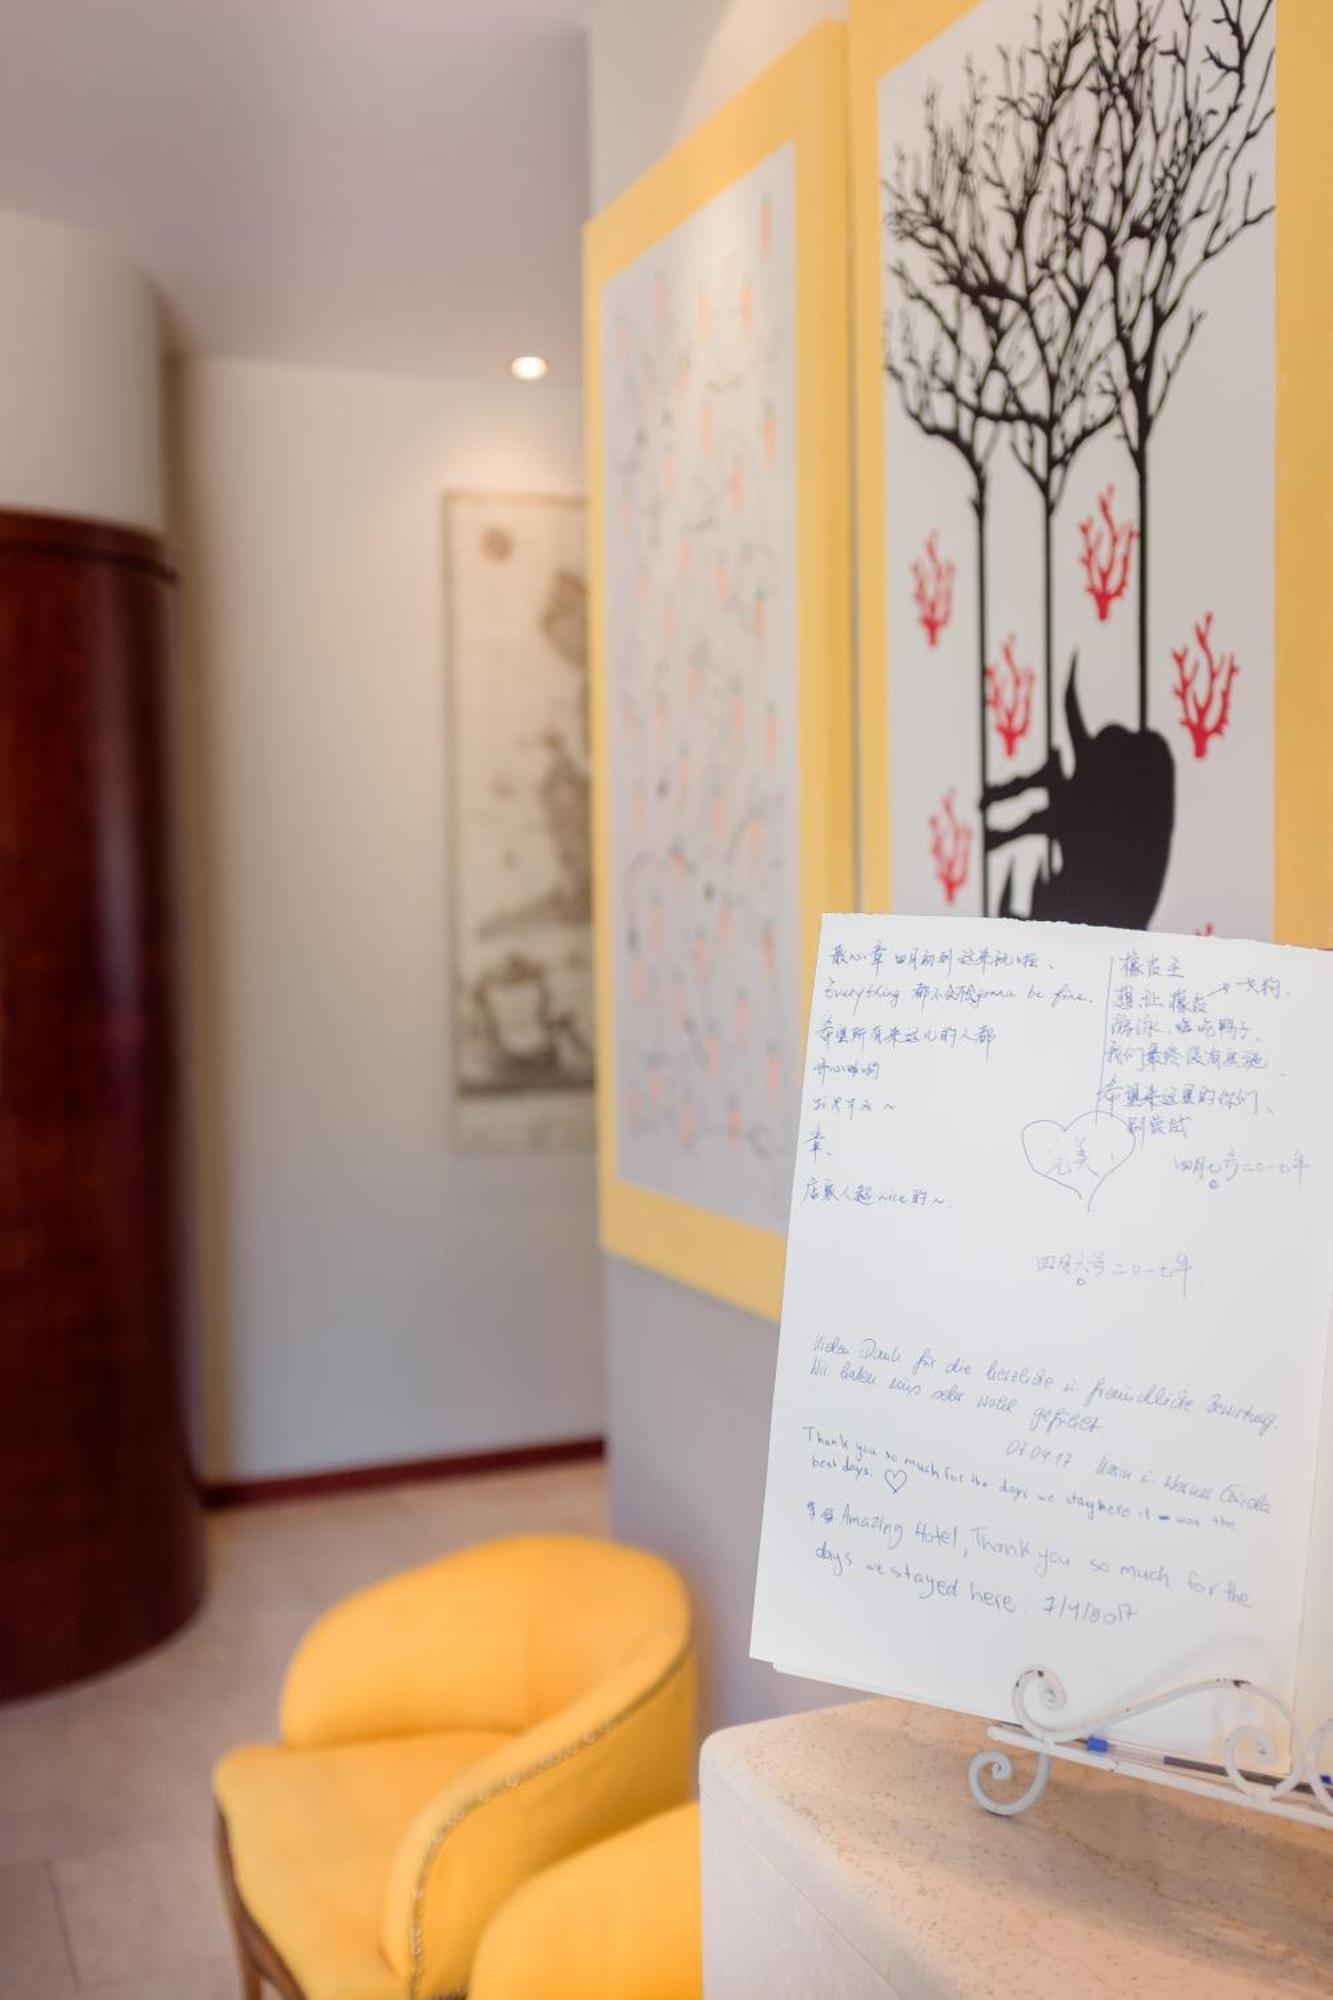 四月初到这来玩啦、
Everything 都不会 gonna be fine.
希望所有来这儿的人都
开心哟
章、
店家人超nice的~.
橡皮王
想让橡皮 → 一只狗、
游泳、吃鸭子、
我们最终没有实施、
希望来这里的你们、
尝试
完美
四月七号二〇一七年
四月六号二〇一七年
Vielen Dank für die herzliche u freundliche Bewirtung.
Wir haben uns sehr wohl gefühlt
07.04.17
Thank you so much for the days we stay here it was the
best days. ♡
Amazing Hotel, Thank you so much for the
days we stayed here. 7/4/2017